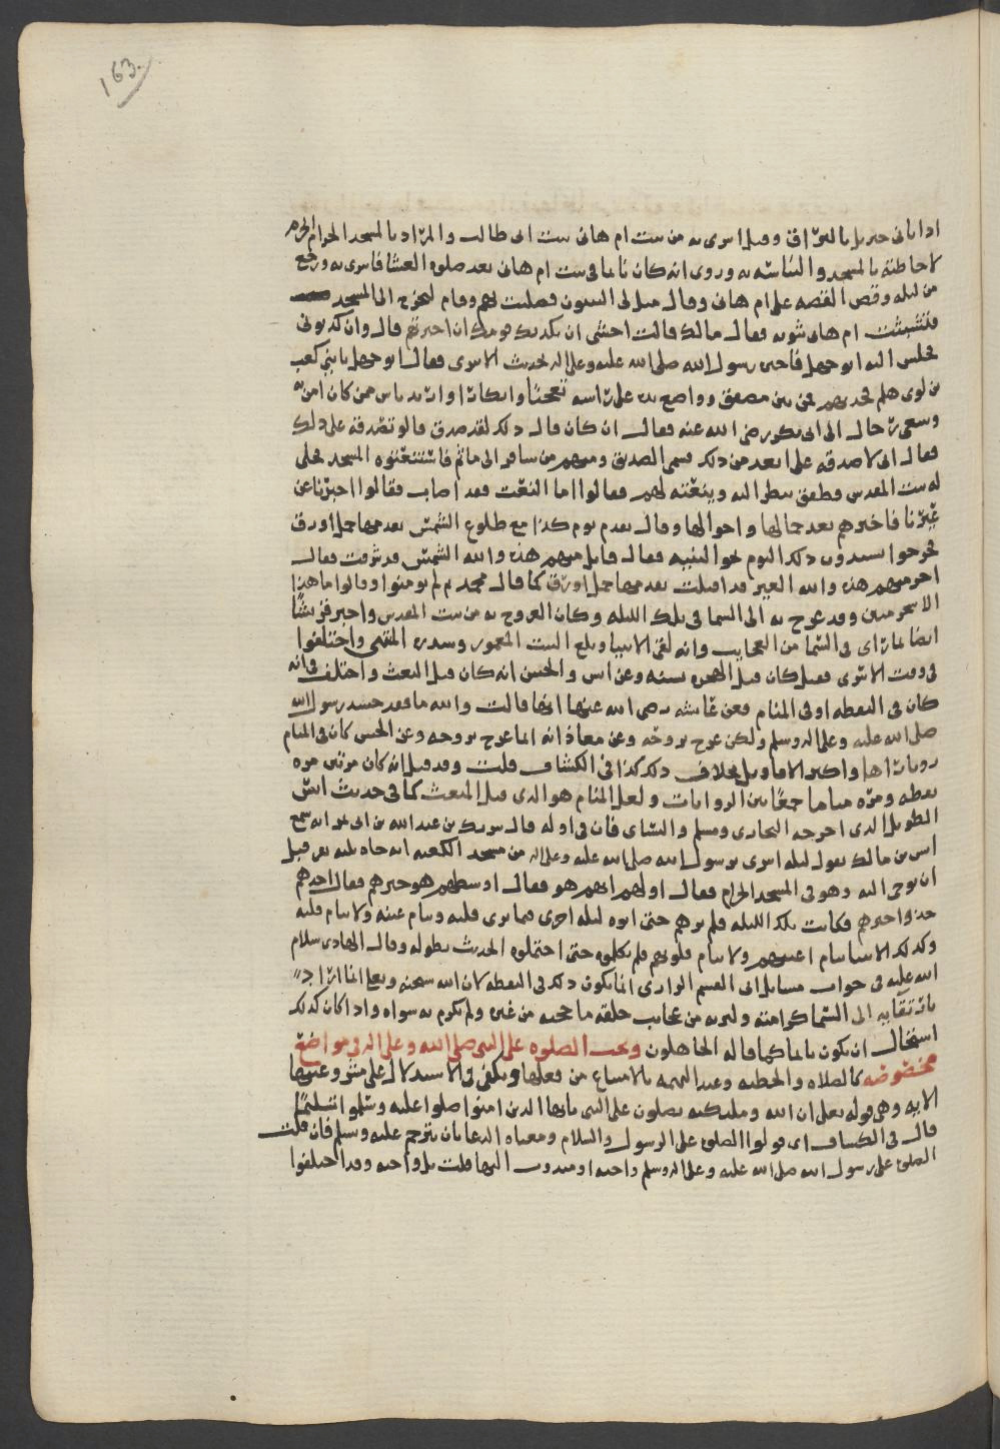 163.
اذ اتاني جبريل بالبراق وقيل اسرى به من بيت ام هاني بنت ابي طالب والمراد بالمسجد الحرام الحرم
لاحاطته بالمسجد والتباسه به وروى انه كان نايما في بيت ام هاني بعد صلوه العشا فاسرى به ورجع
من ليلته وقص القصه على ام هاني وقال مثل لي النبيون فصليت بهم وقام ليخرج الى المسجد
فتشبثت ام هاني بثوبه فقال مالك قالت اخشى ان يكذبك قومك ان اخبرتهم قال وان كذبوني
فجلس اليه ابو جهل فاخبره رسول الله صلى الله عليه وعلى اله بحديث الاسرى فقال ابو جهل يا بني كعب
بن لوى هلم فحدثهم فمن بين مصفق وواضع يده على راسه تعجبًا وانكارًا وارتد ناس ممن كان امن به
وسعى رجال الى ابي بكر رضي الله عنه فقال ان كان قال ذلك لقد صدق قالوا تصدقه على ذلك
فقال اني لاصدقه على ابعد من ذلك فسمي الصديق ومنهم من سافر الى ما ثم فاستنعتوه المسجد فجلي
له بيت المقدس فطفق ينظر اليه وينعته لهم فقالوا اما النعت فقد اصاب فقالوا اخبرنا عن
عيرنا فاخبرهم بعدد جمالها واحوالها وقال تقدم يوم كذا مع طلوع الشمس يقدمها جمل اورق
فخرجوا يشتدون ذلك اليوم نحو الثنيه فقال قايل منهم هذه والله الشمس قد شرقت فقال
اخر منهم هذه والله العير قد اقبلت يقدمها جمل اورق كما قال محمد ثم لم يومنوا وقالوا ما هذا
الا سحر مبين وقد عرج به الى السما في تلك الليله وكان العروج به من بيت المقدس واخبر قريشًا
ايضا بما راى في السما من العجايب وانه لقي الانبيا وبلغ البيت المعمور وسدره المنتهى واختلفوا
في وقت الاسرى فقيل كان قبل الهجره بسنه وعن انس والحسن انه كان قبل البعث واختلف في انه
كان في اليقظه او في المنام فعن عايشه رضي الله عنها انها قالت والله ما فقد جسد رسول الله
صلى الله عليه وعلى اله وسلم ولكن عرج بروحه وعن معاذ انه انما عرج بروحه وعن الحسن كان في المنام
رويا راها واكثر الاقاويل بخلاف ذلك كذا في الكشاف قلت وقد قيل انه كان مرتين مره
يقظه ومره مناما جمعًا بين الروايات ولعل المنام هو الذي قبل المبعث كما في حديث انس
الطويل الذي اخرجه البخاري ومسلم والنساي فان في اوله قال شريك بن عبد الله بن ابي نمر انه سمع
انس بن مالك يقول ليله اسرى برسول الله صلى الله عليه وعلى اله من مسجد الكعبه انه جاه ثلثه نفر قبل
ان يوحى اليه وهو في المسجد الحرام فقال اولهم ايهم هو فقال اوسطهم هو خيرهم فقال احدهم
خذوا خيرهم فكانت تلك الليله فلم يرهم حتى اتوه ليله اخرى فيما يرى قلبه وتنام عينه ولا ينام قلبه
وكذلك الانبيا تنام اعينهم ولا تنام قلوبهم فلم يكلموه حتى احتملوه الحديث بطوله وقال الهادي سلام
الله عليه في جواب مسايل ابي القسم الرازي انما يكون ذلك في اليقظه لان الله سبحنه وتعلى انما اراد
بارتقايه الى السما كرامته وليريه من عجايب خلقه ما حجبه من غيره ولم يكرم به سواه واذا كان كذلك
استحال ان يكون نايما كما قاله الجاهلون وتجب الصلوه على النبي صلى الله وعلى اله في مواضع
مخصوصه كالصلاه والخطبه وعند التهمه بالامتناع من فعلها ويكفي في الاستدلال على مشروعيتها
الايه وهي قوله تعلى ان الله ومليكته يصلون على النبي يايها الذين امنوا صلوا عليه وسلموا تسليمًا
قال في الكشاف اي قولوا الصلوه على الرسول والسلام ومعناه الدعا بان يترحم عليه ويسلم فان قلت
الصلوه على رسول الله صلى الله عليه وعلى اله وسلم واجبه او مندوب اليها قلت بل واجبه وقد اختلفوا